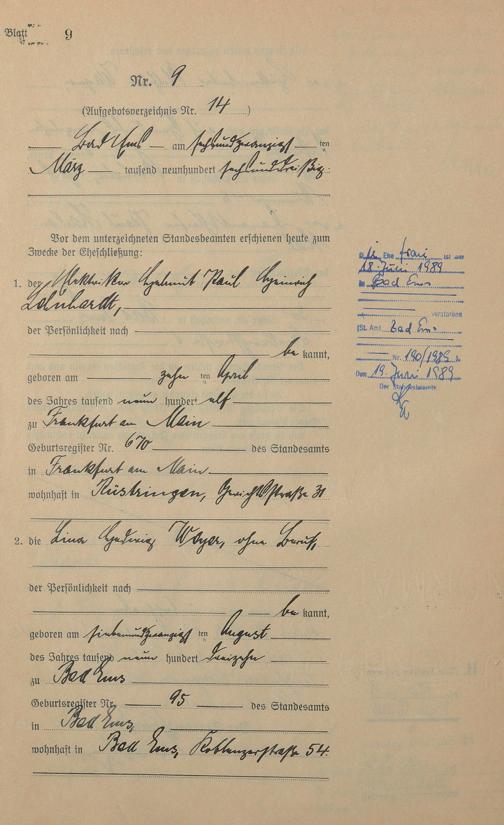 Blatt 9
Nr. 9
(Aufgebotsverzeichnis Nr. 14)
Bad Ems am sechsundzwanzigsten
März tausend neunhundert sechsunddreißig.
Vor dem unterzeichneten Standesbeamten erschienen heute zum
Zwecke der Eheschließung:
1. der Elektriker Helmut Paul Heinrich
der Persönlichkeit nach
bekannt,
geboren am zehnten April
des Jahres tausend neunhundert elf
zu Frankfurt am Main
Geburtsregister Nr. 670 des Standesamts
in Frankfurt am Main
wohnhaft in Rüstringen, Gerichtsstraße 31
2. die Lina Hedwig, ohne Beruf,
der Persönlichkeit nach
bekannt,
geboren am siebenundzwanzigsten August
des Jahres tausend neunhundert dreizehn
zu Bad Ems
Geburtsregister Nr. 95 des Standesamts
in Bad Ems,
wohnhaft in Bad Ems, Koblenzerstraße 54.
Ehefrau ist am
18. Juni 1989
in Bad Ems
verstorben
(St. Amt Bad Ems
Nr. 190/1989)
Den 19. Juni 1989
Der Standesbeamte